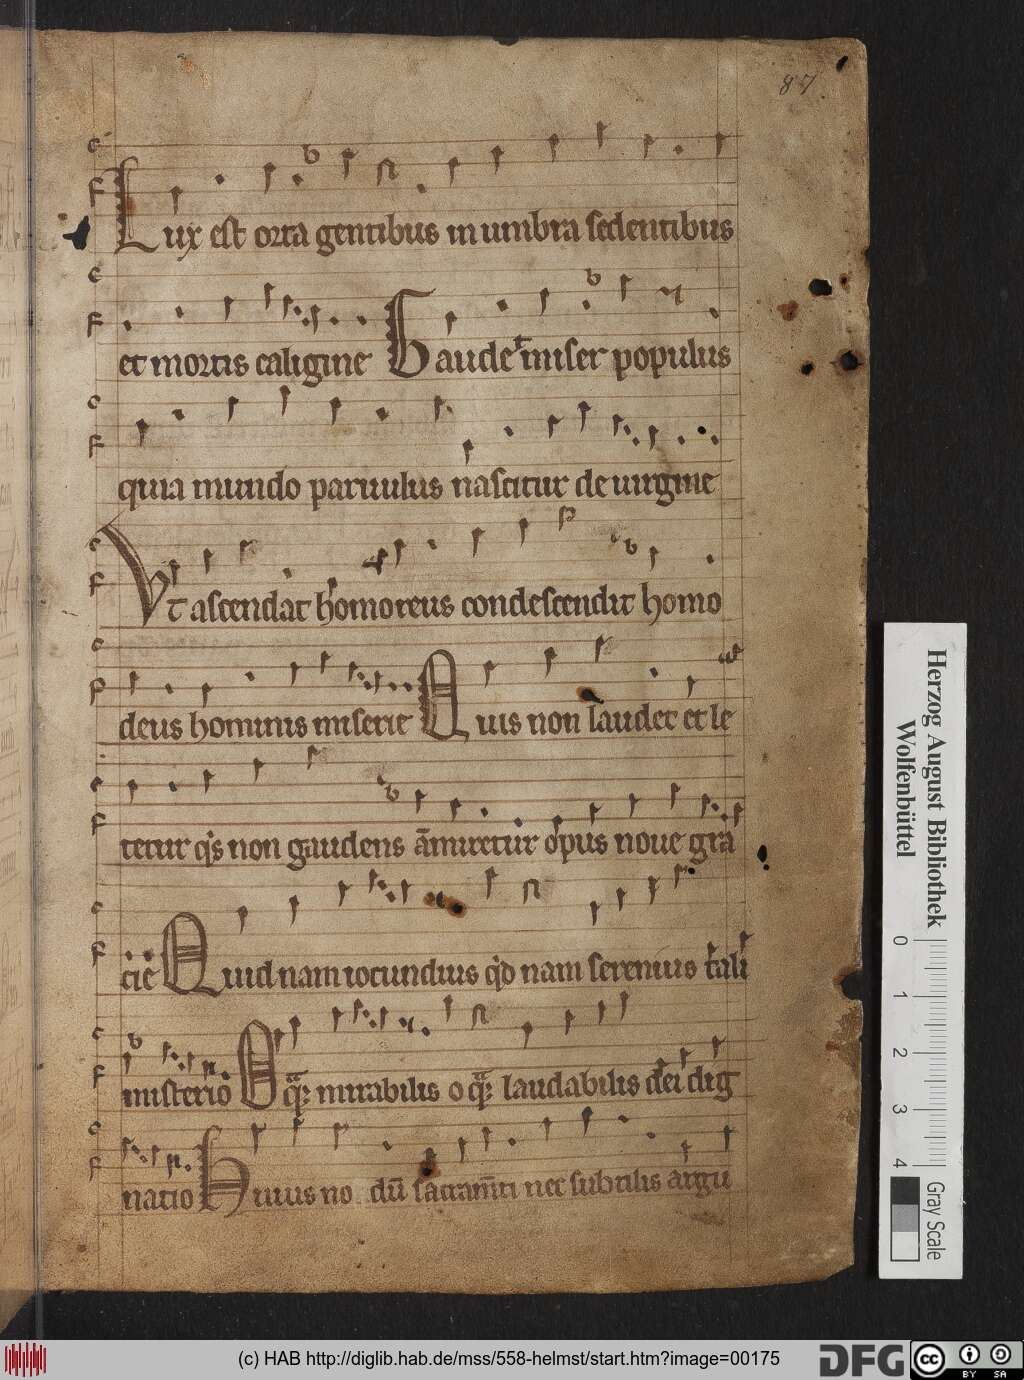 87.
Lux est orta gentibus in umbra sedentibus
et mortis caligine Gaudet miser populus
quia mundo paruulus nascitur de uirgine
Vt ascendat homo reus condescendit homo
deus hominis miserie Quis non laudet et le
tetur qis non gaudens āmiretur opus noue gra
cie Quid nam iocundius qid nam serenius tali
misterio O qa mirabilis o qa laudabilis dei dig
natio Huius no dū sacramti nec subtilis argu
Herzog August Bibliothek
Wolfenbüttel
0 1 2 3 4
Gray Scale
(c) HAB http://diglib.hab.de/mss/558-helmst/start.htm?image=00175
DFG
cc BY SA